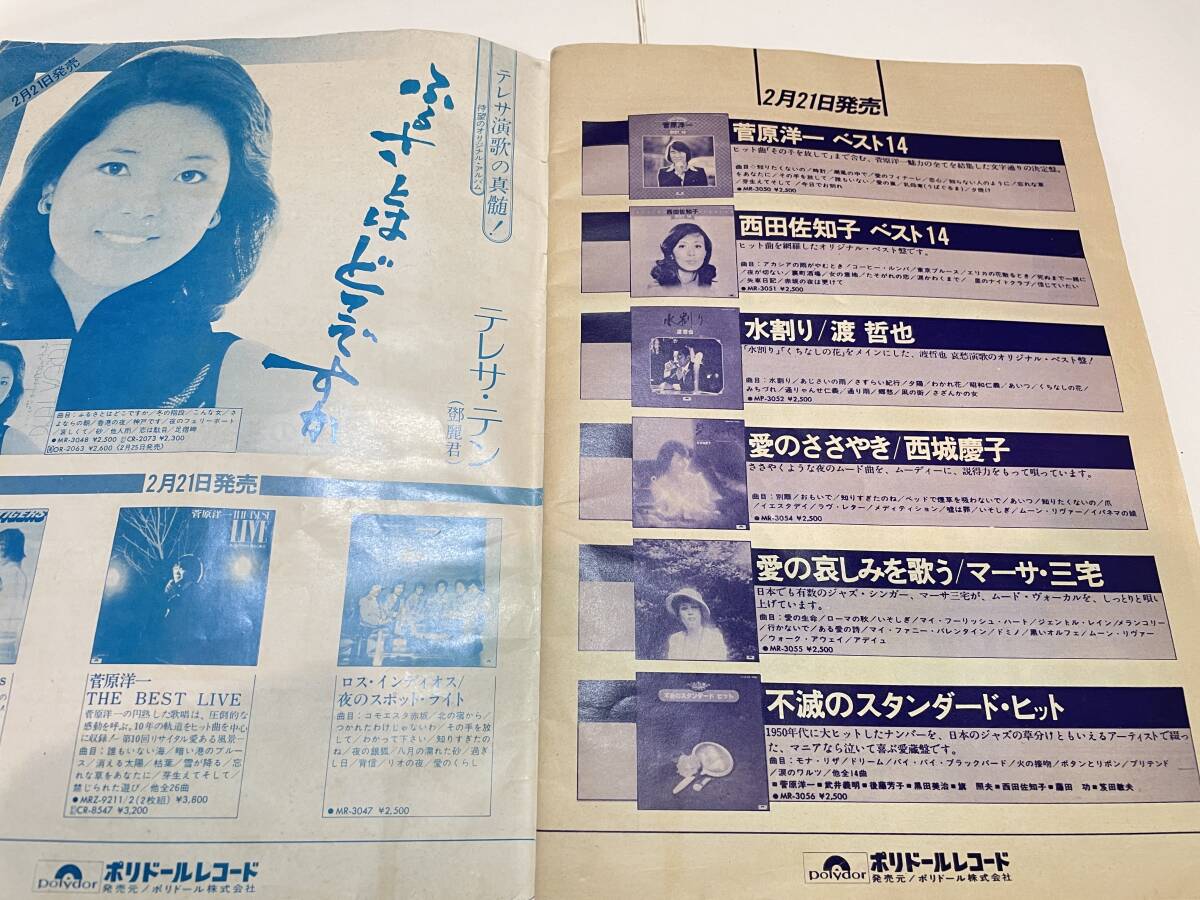 2月21日発売
テレサ演歌の真髄!
待望のオリジナル・アルバム
ふるさとはどこですか
テレサ・テン
(鄧麗君)
曲目:ふるさとはどこですか/冬の階段/こんな女/さ
よならの朝/香港の夜/神戸です/夜のフェリーボート
/哀しくて/砂/他人雨/恋は駄目/足摺岬
●MR-3048 ¥2,500 CR-2073 ¥2,300
OR-2063 ¥2,600(2月25日発売)
2月21日発売
IGERS
菅原洋一 THE BEST
LIVE
菅原洋一
THE BEST LIVE
菅原洋一の円熟した歌唱は、圧倒的な
感動を呼ぶ。10年の軌道をヒット曲を中心
に収録!―第10回リサイタル愛ある風景―
曲目:誰もいない海/暗い港のブルー
ス/消える太陽/枯葉/雪が降る/忘
れな草をあなたに/芽生えてそして/
禁じられた遊び/他全26曲
●MRZ-9211/2(2枚組) ¥3,600
CR-8547 ¥3,200
ロス・インディオス/
夜のスポット・ライト
曲目:コモエスタ赤坂/北の宿から/
つかれたわけじゃないわ/その手を放
して/わかって下さい/知りすぎたの
ね/夜の銀狐/八月の濡れた砂/過ぎ
し日/背信/リオの夜/愛のくらし
●MR-3047 ¥2,500
polydor ポリドールレコード
発売元/ポリドール株式会社
2月21日発売
菅原洋一
菅原洋一 ベスト14
ヒット曲「その手を放して」まで含む、菅原洋一魅力の全てを結集した文字通りの決定盤。
曲目:知りたくないの/時計/潮風の中で/愛のフィナーレ/恋心/知らない人のように/忘れな草
をあなたに/その手を放して/誰もいない/愛の嵐/乳母車(うばぐるま)/夕焼け
/芽生えてそして/今日でお別れ
●MR-3050 ¥2,500
西田佐知子
西田佐知子 ベスト14
ヒット曲を網羅したオリジナル・ベスト盤です。
曲目:アカシアの雨がやむとき/コーヒー・ルンバ/東京ブルース/エリカの花散るとき/死ぬまで一緒に
/夜が切ない/裏町酒場/女の意地/たそがれの恋/涙かわくまで/星のナイトクラブ/信じていたい
/失車日記/赤坂の夜は更けて
●MR-3051 ¥2,500
水割り
渡哲也
水割り/渡 哲也
「水割り」「くちなしの花」をメインにした、渡哲也 哀愁演歌のオリジナル・ベスト盤!
曲目:水割り/あじさいの雨/さすらい紀行/夕陽/わかれ花/昭和仁義/あいつ/くちなしの花/
みちづれ/通りゃんせ仁義/通り雨/郷愁/風の街/さざんかの女
●MP-3052 ¥2,500
愛のささやき/西城慶子
ささやくような夜のムード曲を、ムーディーに、説得力をもって唄っています。
曲目:別離/おもいで/知りすぎたのね/ベッドで煙草を吸わないで/あいつ/知りたくないの/爪
/イエスタデイ/ラヴ・レター/メディテイション/嘘は罪/いそしぎ/ムーン・リヴァー/イパネマの娘
●MR-3054 ¥2,500
愛の哀しみを歌う/マーサ・三宅
日本でも有数のジャズ・シンガー、マーサ三宅が、ムード・ヴォーカルを、しっとりと唄い
上げています。
曲目:愛の生命/ローマの秋/いそしぎ/マイ・フーリッシュ・ハート/ジェントル・レイン/メランコリー
/行かないで/ある愛の詩/マイ・ファニー・バレンタイン/ドミノ/黒いオルフェ/ムーン・リヴァー
/ウォーク・アウェイ/アデイュ
●MR-3055 ¥2,500
不滅のスタンダード ヒット
不滅のスタンダード・ヒット
1950年代に大ヒットしたナンバーを、日本のジャズの草分けともいえるアーティストで綴っ
た、マニアなら泣いて喜ぶ愛蔵盤です。
曲目:モナ・リザ/ドリーム/バイ・バイ・ブラックバード/火の接吻/ボタンとリボン/プリテンド
/涙のワルツ/他全14曲
■菅原洋一■武井義明■後藤芳子■黒田美治■旗 照夫■西田佐知子■藤田 功■笈田敏夫
●MR-3056 ¥2,500
polydor ポリドールレコード
発売元/ポリドール株式会社